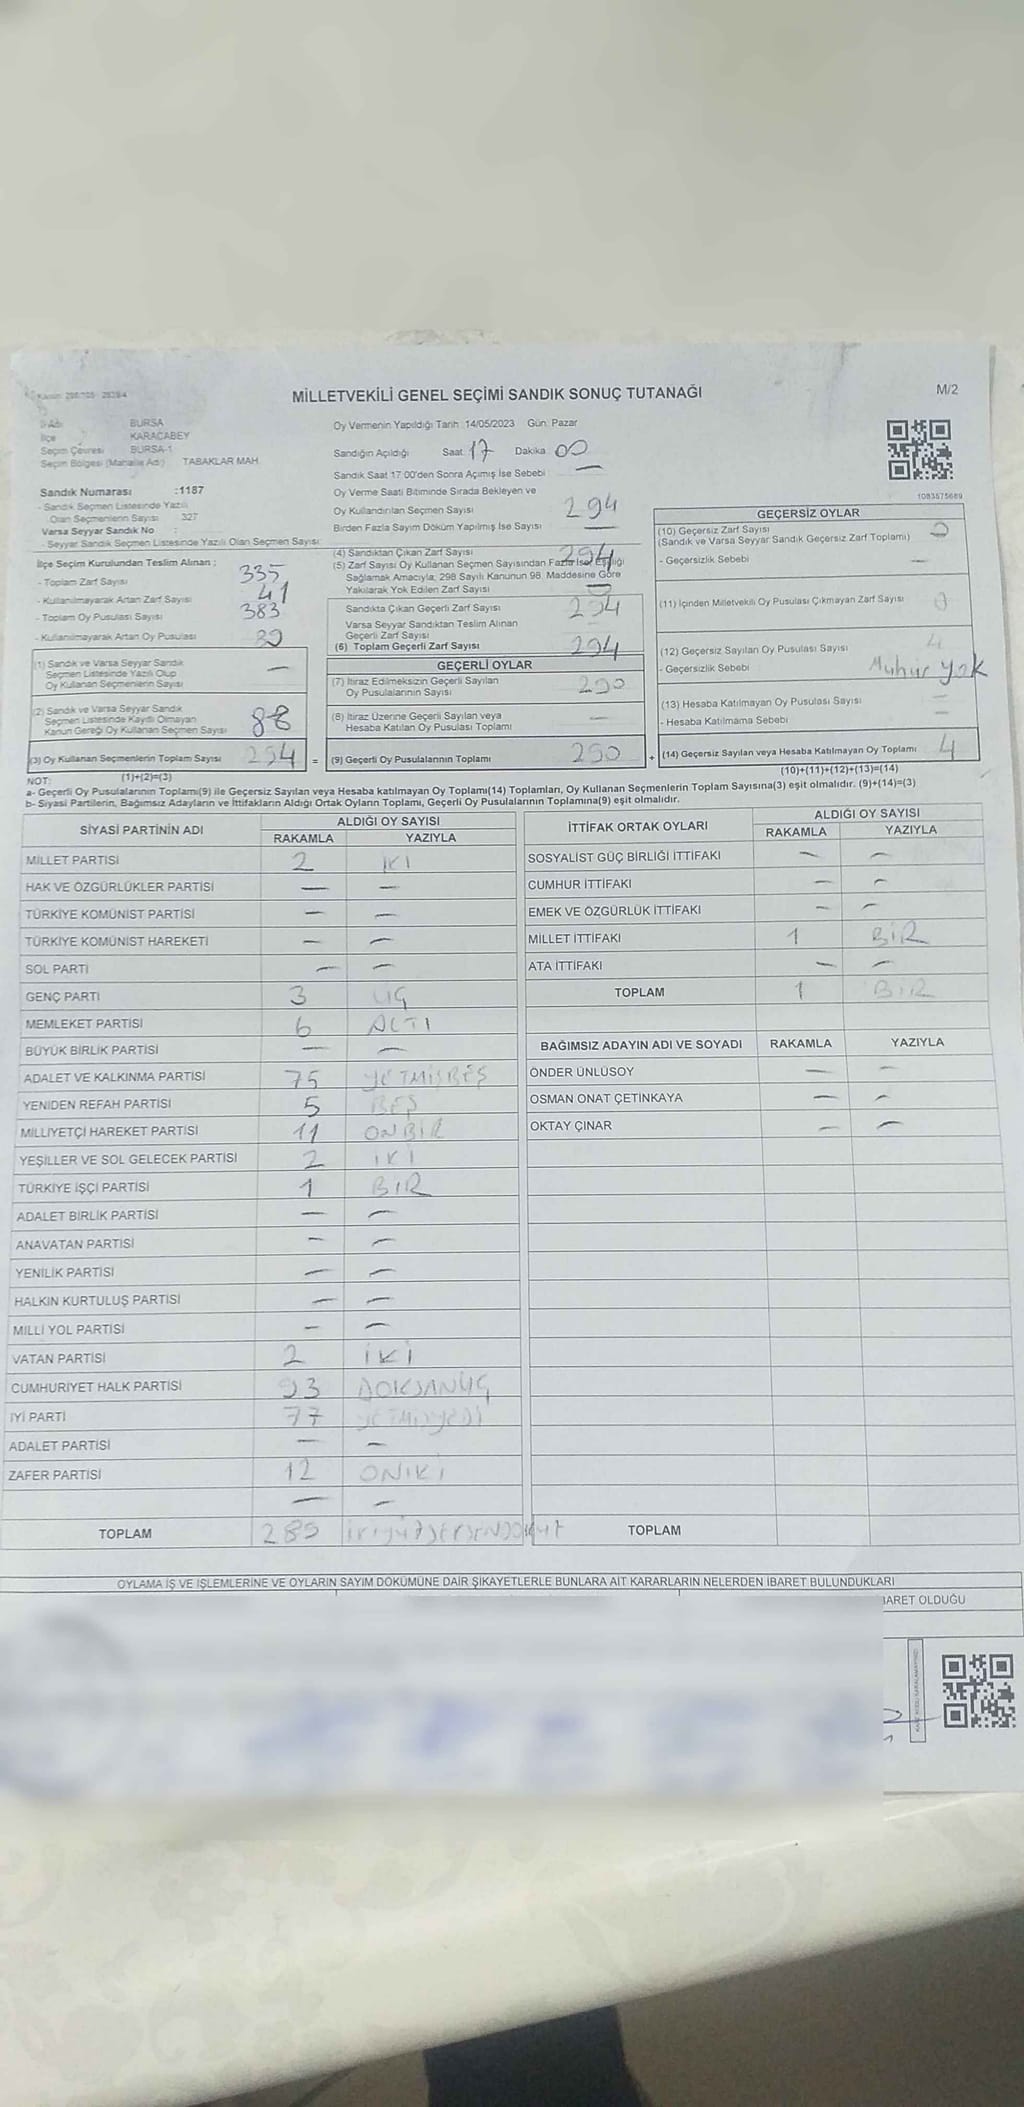 MİLLETVEKİLİ GENEL SEÇİMİ SANDIK SONUÇ TUTANAĞI
M/2
İl Adı BURSA
İlçe KARACABEY
Seçim Çevresi BURSA-1
Seçim Bölgesi (Mahalle Adı) TABAKLAR MAH
Sandık Numarası :1187
- Sandık Seçmen Listesinde Yazılı
Olan Seçmenlerin Sayısı 327
Varsa Seyyar Sandık No :
- Seyyar Sandık Seçmen Listesinde Yazılı Olan Seçmen Sayısı
İlçe Seçim Kurulundan Teslim Alınan :
- Toplam Zarf Sayısı 335
- Kullanılmayarak Artan Zarf Sayısı 41
- Toplam Oy Pusulası Sayısı 383
- Kullanılmayarak Artan Oy Pusulası
(1) Sandık ve Varsa Seyyar Sandık
Seçmen Listesinde Yazılı Olup
Oy Kullanan Seçmenlerin Sayısı —
(2) Sandık ve Varsa Seyyar Sandık
Seçmen Listesinde Kayıtlı Olmayan
Kanun Gereği Oy Kullanan Seçmen Sayısı
(3) Oy Kullanan Seçmenlerin Toplam Sayısı 294 =
(1)+(2)=(3)
Oy Vermenin Yapıldığı Tarih 14/05/2023 Gün: Pazar
Sandığın Açıldığı Saat 17 Dakika 00
Sandık Saat 17:00'den Sonra Açımış İse Sebebi —
Oy Verme Saati Bitiminde Sırada Bekleyen ve
Oy Kullandırılan Seçmen Sayısı 294
Birden Fazla Sayım Döküm Yapılmış İse Sayısı —
(4) Sandıktan Çıkan Zarf Sayısı 294
(5) Zarf Sayısı Oy Kullanan Seçmen Sayısından Fazla İse, Eşitliği
Sağlamak Amacıyla, 298 Sayılı Kanunun 98. Maddesine Göre
Yakılarak Yok Edilen Zarf Sayısı
Sandıkta Çıkan Geçerli Zarf Sayısı 294
Varsa Seyyar Sandıktan Teslim Alınan
Geçerli Zarf Sayısı —
(6) Toplam Geçerli Zarf Sayısı 294
GEÇERLİ OYLAR
(7) İtiraz Edilmeksizin Geçerli Sayılan
Oy Pusulalarının Sayısı 290
(8) İtiraz Üzerine Geçerli Sayılan veya
Hesaba Katılan Oy Pusulası Toplamı —
(9) Geçerli Oy Pusulalarının Toplamı 290 +
1083575689
GEÇERSİZ OYLAR
(10) Geçersiz Zarf Sayısı
(Sandık ve Varsa Seyyar Sandık Geçersiz Zarf Toplamı)
- Geçersizlik Sebebi —
(11) İçinden Milletvekili Oy Pusulası Çıkmayan Zarf Sayısı
(12) Geçersiz Sayılan Oy Pusulası Sayısı 4
- Geçersizlik Sebebi Muhur yok
(13) Hesaba Katılmayan Oy Pusulası Sayısı —
- Hesaba Katılmama Sebebi —
(14) Geçersiz Sayılan veya Hesaba Katılmayan Oy Toplamı 4
(10)+(11)+(12)+(13)=(14)
NOT:
a- Geçerli Oy Pusulalarının Toplamı(9) ile Geçersiz Sayılan veya Hesaba katılmayan Oy Toplamı(14) Toplamları, Oy Kullanan Seçmenlerin Toplam Sayısına(3) eşit olmalıdır. (9)+(14)=(3)
b- Siyasi Partilerin, Bağımsız Adayların ve İttifakların Aldığı Ortak Oyların Toplamı, Geçerli Oy Pusulalarının Toplamına(9) eşit olmalıdır.
SİYASİ PARTİNİN ADI
ALDIĞI OY SAYISI
RAKAMLA YAZIYLA
MİLLET PARTİSİ 2 İKİ
HAK VE ÖZGÜRLÜKLER PARTİSİ — —
TÜRKİYE KOMÜNİST PARTİSİ — —
TÜRKİYE KOMÜNİST HAREKETİ — —
SOL PARTİ — —
GENÇ PARTİ 3 ÜÇ
MEMLEKET PARTİSİ 6 ALTI
BÜYÜK BİRLİK PARTİSİ — —
ADALET VE KALKINMA PARTİSİ 75 YETMİŞBEŞ
YENİDEN REFAH PARTİSİ 5 BEŞ
MİLLİYETÇİ HAREKET PARTİSİ 11 ONBİR
YEŞİLLER VE SOL GELECEK PARTİSİ 2 İKİ
TÜRKİYE İŞÇİ PARTİSİ 1 BİR
ADALET BİRLİK PARTİSİ — —
ANAVATAN PARTİSİ — —
YENİLİK PARTİSİ — —
HALKIN KURTULUŞ PARTİSİ — —
MİLLİ YOL PARTİSİ — —
VATAN PARTİSİ 2 İKİ
CUMHURİYET HALK PARTİSİ 93 DOKSANÜÇ
İYİ PARTİ 77 YETMİŞYEDİ
ADALET PARTİSİ — —
ZAFER PARTİSİ 12 ONİKİ
— —
TOPLAM 289 İKİYÜZSEKSENDOKUZ
İTTİFAK ORTAK OYLARI
ALDIĞI OY SAYISI
RAKAMLA YAZIYLA
SOSYALİST GÜÇ BİRLİĞİ İTTİFAKI — —
CUMHUR İTTİFAKI — —
EMEK VE ÖZGÜRLÜK İTTİFAKI — —
MİLLET İTTİFAKI 1 BİR
ATA İTTİFAKI — —
TOPLAM 1 BİR
BAĞIMSIZ ADAYIN ADI VE SOYADI RAKAMLA YAZIYLA
ÖNDER ÜNLÜSOY — —
OSMAN ONAT ÇETİNKAYA — —
OKTAY ÇINAR — —
TOPLAM
OYLAMA İŞ VE İŞLEMLERİNE VE OYLARIN SAYIM DÖKÜMÜNE DAİR ŞİKAYETLERLE BUNLARA AİT KARARLARIN NELERDEN İBARET BULUNDUKLARI
İBARET OLDUĞU